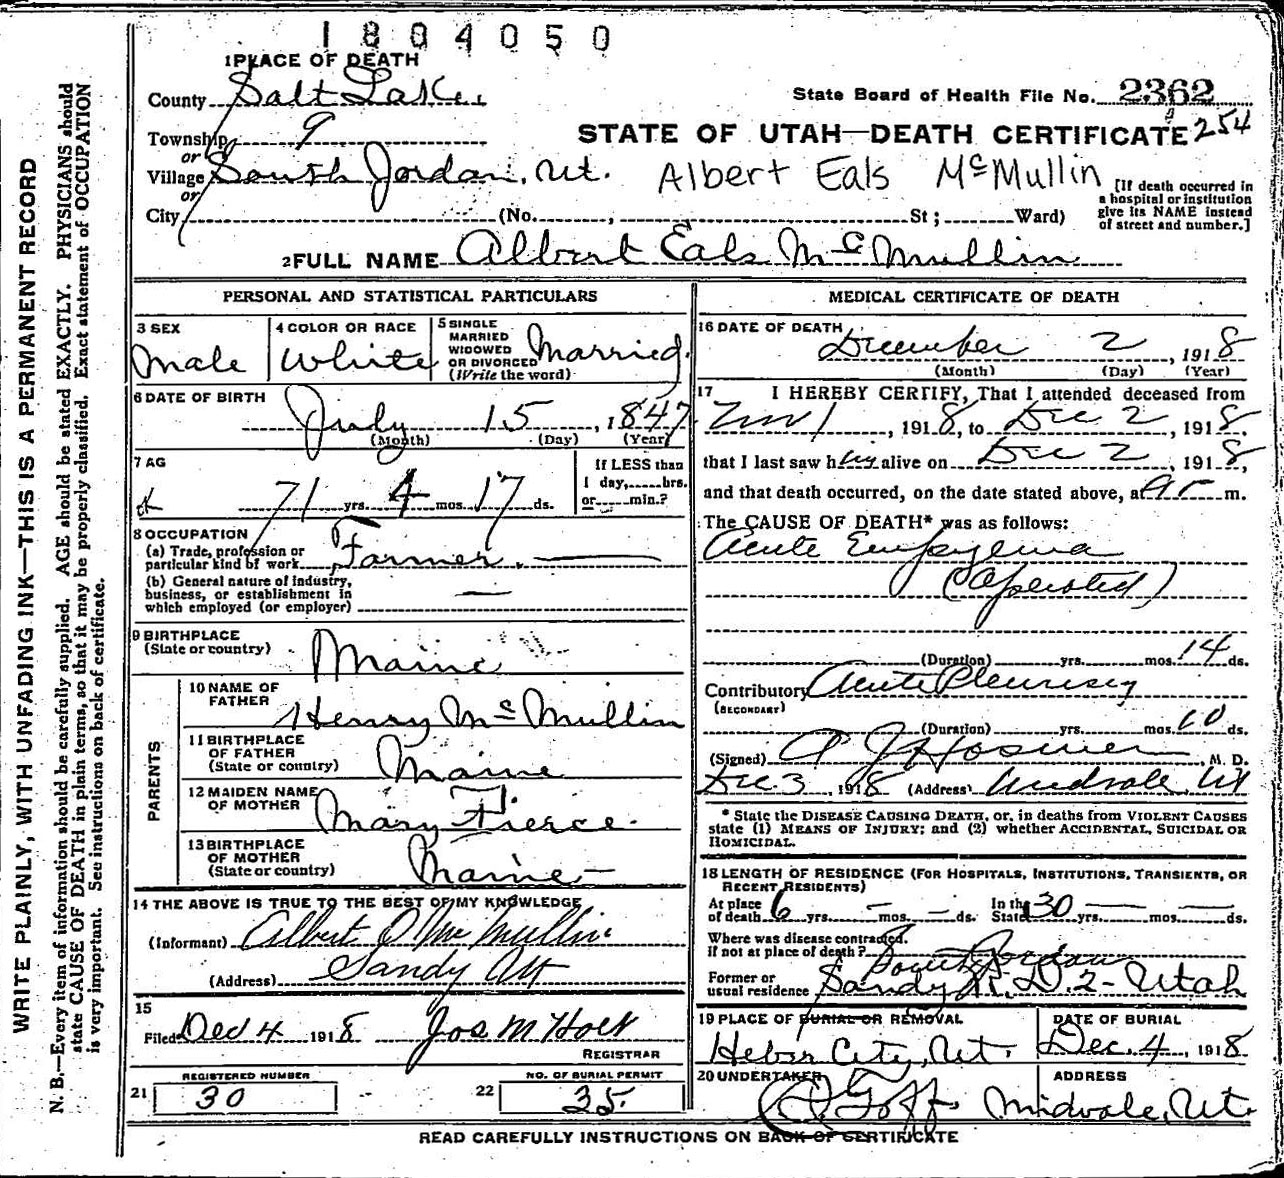 1804050
1 PLACE OF DEATH
County Salt Lake
State Board of Health File No. 2362
Township 9
STATE OF UTAH—DEATH CERTIFICATE 254
or
Village South Jordan, Ut. Albert Eals McMullin
or
City (No. , St; Ward)
[If death occurred in
a hospital or institution
give its NAME instead
of street and number.]
2 FULL NAME Albert Eals McMullin
PERSONAL AND STATISTICAL PARTICULARS
3 SEX
Male
4 COLOR OR RACE
White
5 SINGLE
MARRIED
WIDOWED
OR DIVORCED
(Write the word)
Married.
6 DATE OF BIRTH
July 15, 1847
(Month) (Day) (Year)
7 AG
71 yrs. 4 mos. 17 ds.
If LESS than
1 day, hrs.
or min.?
8 OCCUPATION
(a) Trade, profession or
particular kind of work Farmer.
(b) General nature of industry,
business, or establishment in
which employed (or employer) —
9 BIRTHPLACE
(State or country)
Maine
PARENTS
10 NAME OF
FATHER
Henry McMullin
11 BIRTHPLACE
OF FATHER
(State or country)
Maine
12 MAIDEN NAME
OF MOTHER
Mary Fierce.
13 BIRTHPLACE
OF MOTHER
(State or country)
Maine—
14 THE ABOVE IS TRUE TO THE BEST OF MY KNOWLEDGE
(Informant) Albert O McMullin
(Address) Sandy Ut
15
Filed Dec 4 1918 Jos M Holt
REGISTRAR
REGISTERED NUMBER
21 30
NO. OF BURIAL PERMIT
22 35.
MEDICAL CERTIFICATE OF DEATH
16 DATE OF DEATH
December 2, 1918
(Month) (Day) (Year)
17 I HEREBY CERTIFY, That I attended deceased from
Nov 1, 1918, to Dec 2, 1918,
that I last saw him alive on Dec 2, 1918,
and that death occurred, on the date stated above, at m.
The CAUSE OF DEATH* was as follows:
Acute Empyema
(Operated)
(Duration) yrs. mos. 14 ds.
Contributory Acute Pleurisy
(SECONDARY)
(Duration) yrs. mos. 10 ds.
(Signed) A J Hosmer, M. D.
Dec 3, 1918 (Address) Midvale, Ut
* State the DISEASE CAUSING DEATH, or, in deaths from VIOLENT CAUSES
state (1) MEANS OF INJURY; and (2) whether ACCIDENTAL, SUICIDAL OR
HOMICIDAL.
18 LENGTH OF RESIDENCE (FOR HOSPITALS, INSTITUTIONS, TRANSIENTS, OR
RECENT RESIDENTS)
At place
of death 6 yrs. — mos. — ds.
In the
State 30 yrs. — mos. — ds.
Where was disease contracted,
if not at place of death? South Jordan
Former or
usual residence Sandy R.D.2- Utah
19 PLACE OF BURIAL OR REMOVAL
Heber City, Ut.
DATE OF BURIAL
Dec. 4, 1918
20 UNDERTAKER
Goff
ADDRESS
Midvale, Ut.
READ CAREFULLY INSTRUCTIONS ON BACK OF CERTIFICATE
WRITE PLAINLY, WITH UNFADING INK—THIS IS A PERMANENT RECORD
N. B.—Every item of information should be carefully supplied. AGE should be stated EXACTLY. PHYSICIANS should
state CAUSE OF DEATH in plain terms, so that it may be properly classified. Exact statement of OCCUPATION
is very important. See instructions on back of certificate.